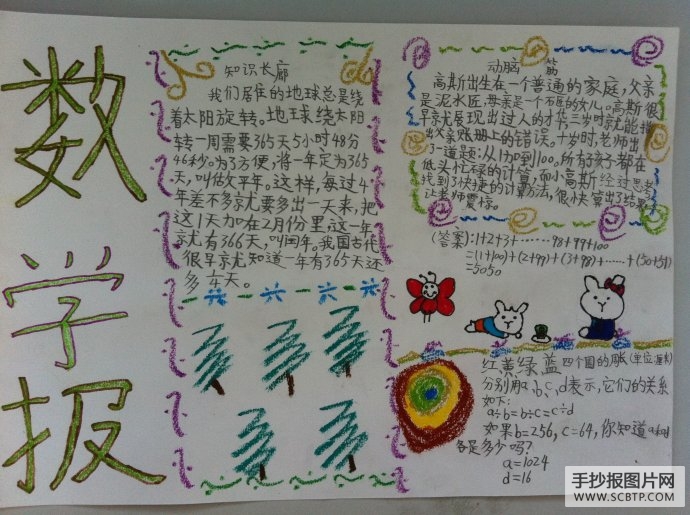 数
学
报
知识长廊
我们居住的地球总是绕
着太阳旋转。地球绕太阳
转一周需要365天5小时48分
46秒。为了方便,将一年定为365
天,叫做平年。这样,每过4
年差不多就要多出一天来,把
这1天加在2月份里,这一年
就有366天,叫闰年。我国古代
很早就知道一年有365天还
多
天。
动脑筋
高斯出生在一个普通的家庭,父亲
是泥水匠,母亲是一个石匠的女儿。高斯很
早就展现出过人的才华,三岁时就能指
出父亲账册上的错误。七岁时,老师出
了一道题:从1加到100。所有孩子都在
低头忙碌的计算,而小高斯经过思考
找到了快捷的计算办法,很快算出了结果,
让老师震惊。
(答案):1+2+3+……98+99+100
=(1+100)+(2+99)+(3+98)+……+(50+51)
=5050
红黄绿蓝 四个圆的周长(单位:厘米)
分别用a、b、c、d表示,它们的关系
如下:
a÷b=b÷c=c÷d
如果b=256,c=64,你知道a和d
各是多少吗?
a=1024
d=16
手抄报图片网
www.SCBTP.com